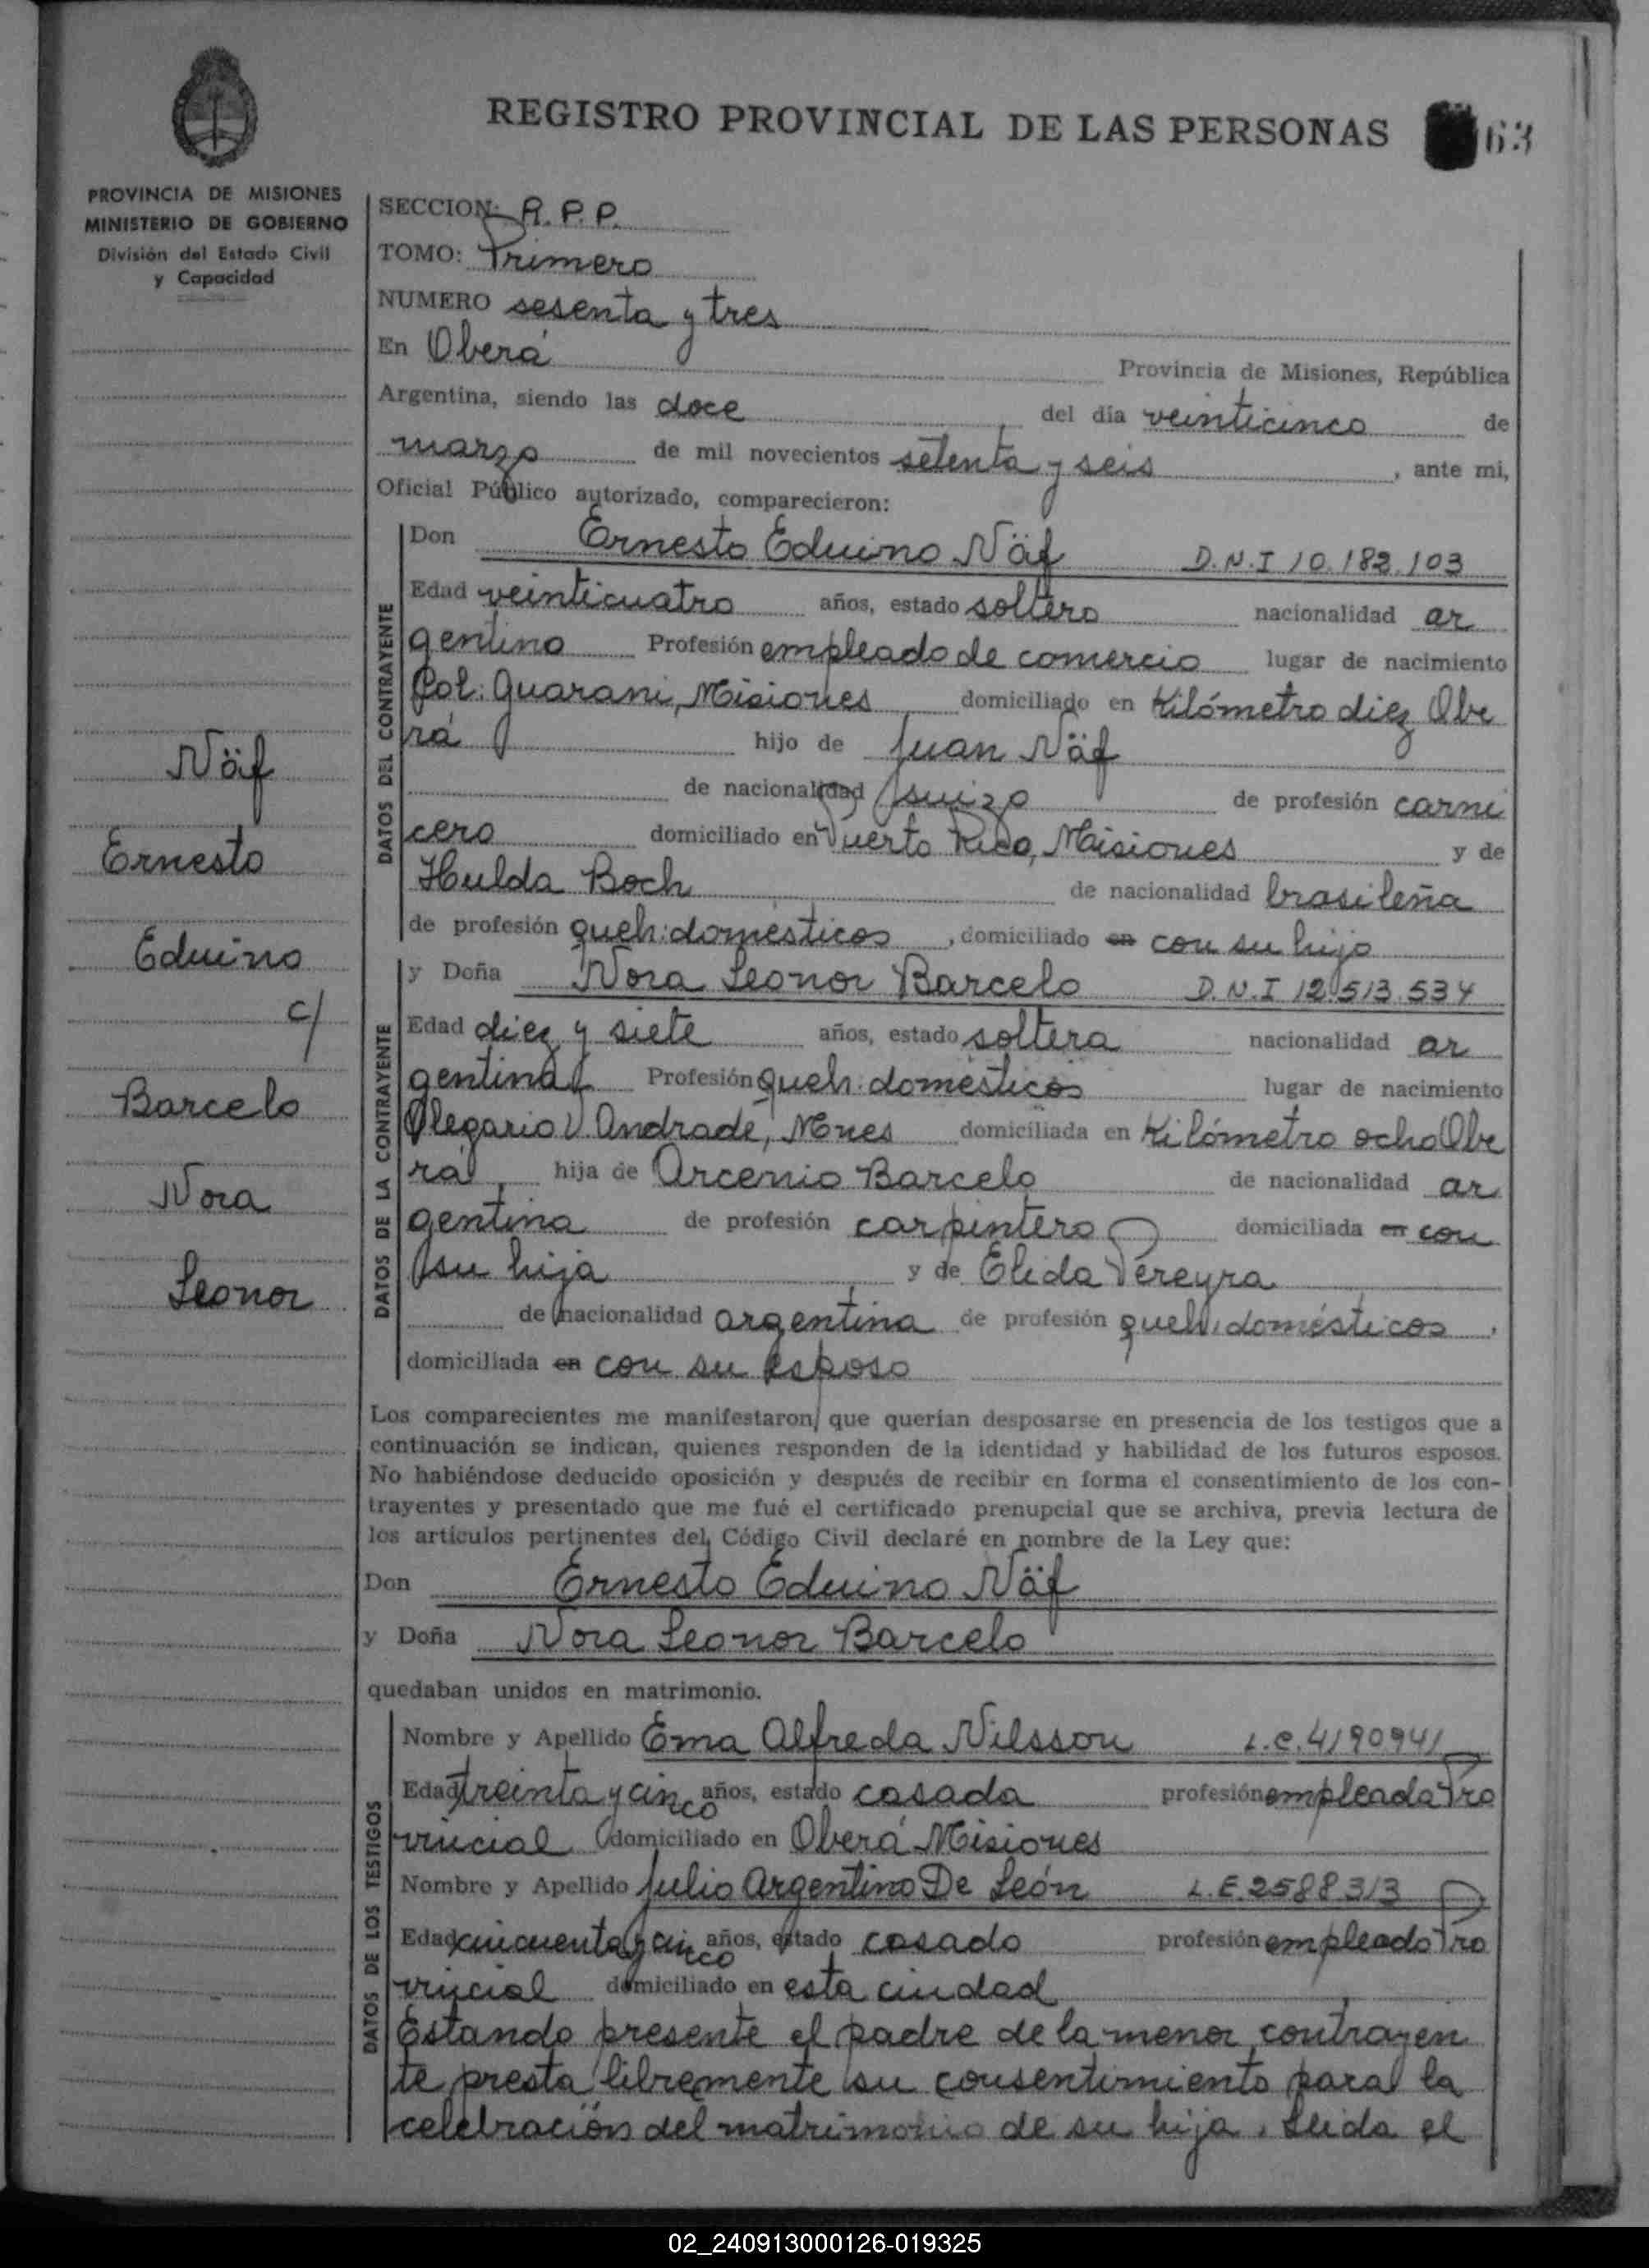 REGISTRO PROVINCIAL DE LAS PERSONAS 63
PROVINCIA DE MISIONES
MINISTERIO DE GOBIERNO
División del Estado Civil
y Capacidad
Näf
Ernesto
Eduino
c/
Barcelo
Nora
Leonor
SECCION: R.P.P.
TOMO: Primero
NUMERO sesenta y tres
En Oberá Provincia de Misiones, República
Argentina, siendo las doce del día veinticinco de
marzo de mil novecientos setenta y seis, ante mi,
Oficial Público autorizado, comparecieron:
DATOS DEL CONTRAYENTE
Don Ernesto Eduino Näf D.N.I 10.182.103
Edad veinticuatro años, estado soltero nacionalidad ar
gentino Profesión empleado de comercio lugar de nacimiento
Col: Guarani, Misiones domiciliado en Kilómetro diez Obe
rá hijo de Juan Näf
de nacionalidad suizo de profesión carni
cero domiciliado en Puerto Rico, Misiones y de
Hulda Boch de nacionalidad brasileña
de profesión queh: domésticos, domiciliado en con su hijo
DATOS DE LA CONTRAYENTE
y Doña Nora Leonor Barcelo D.N.I 12.513.534
Edad diez y siete años, estado soltera nacionalidad ar
gentina Profesión queh: domésticos lugar de nacimiento
Olegario V. Andrade, Mnes domiciliada en Kilómetro ocho Obe
rá, hija de Arcenio Barcelo de nacionalidad ar
gentina de profesión carpintero domiciliada en con
su hija y de Elida Pereyra
de nacionalidad argentina de profesión queh: domésticos,
domiciliada en con su esposo
Los comparecientes me manifestaron, que querían desposarse en presencia de los testigos que a
continuación se indican, quienes responden de la identidad y habilidad de los futuros esposos.
No habiéndose deducido oposición y después de recibir en forma el consentimiento de los con-
trayentes y presentado que me fué el certificado prenupcial que se archiva, previa lectura de
los artículos pertinentes del Código Civil declaré en nombre de la Ley que:
Don Ernesto Eduino Näf
y Doña Nora Leonor Barcelo
quedaban unidos en matrimonio.
DATOS DE LOS TESTIGOS
Nombre y Apellido Ema Alfreda Nilsson L.C. 4190941
Edad treinta y cinco años, estado casada profesión empleada Pro
vincial domiciliado en Oberá Misiones
Nombre y Apellido Julio Argentino De León L.E. 2588313
Edad cincuenta y cinco años, estado casado profesión empleado Pro
vincial domiciliado en esta ciudad
Estando presente el padre de la menor contrayen
te presta libremente su consentimiento para la
celebración del matrimonio de su hija. Leida el
02_240913000126-019325